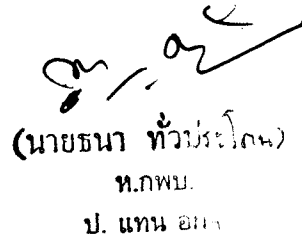 (นายธนา ทั่วประโคน)
ห.กพบ.
ป. แทน